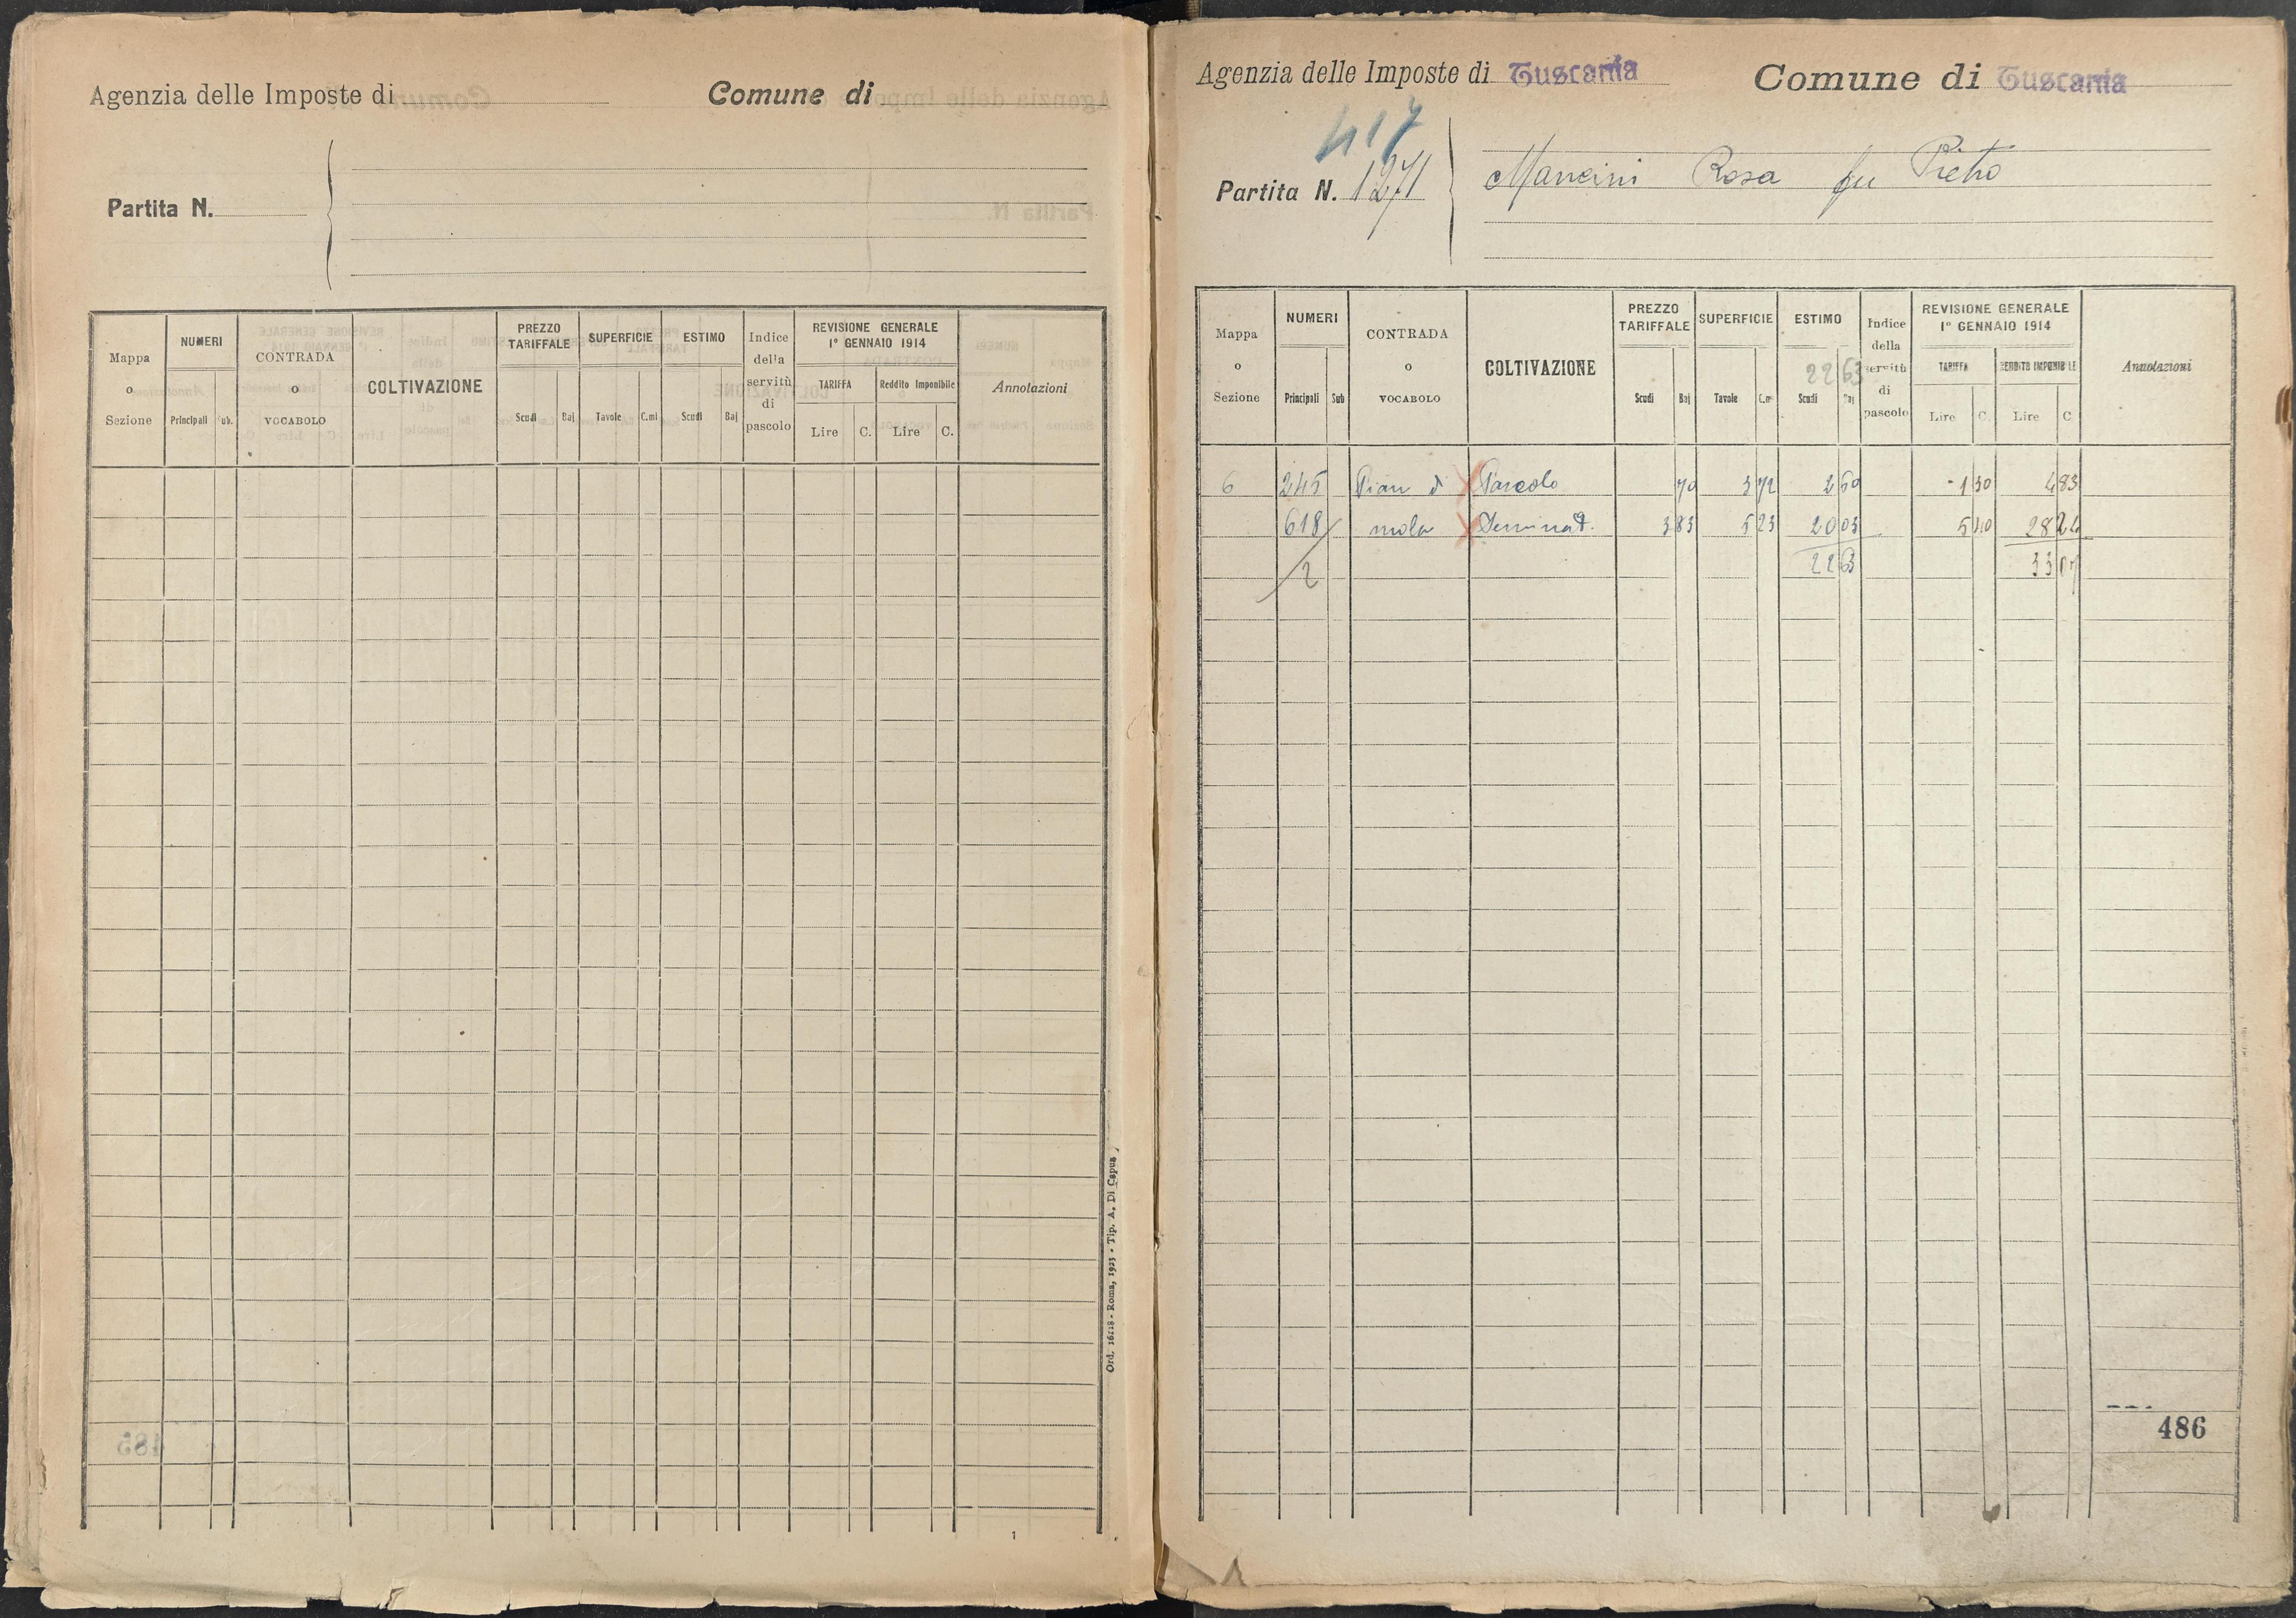 Agenzia delle Imposte di
Comune di
Partita N.
Mappa o Sezione
NUMERI
Principali
Sub.
CONTRADA o VOCABOLO
COLTIVAZIONE
PREZZO TARIFFALE
Scudi
Baj
SUPERFICIE
Tavole
C.mi
ESTIMO
Scudi
Baj
Indice della servitù di pascolo
REVISIONE GENERALE
1° GENNAIO 1914
TARIFFA
Lire
C.
Reddito Imponibile
Lire
C.
Annotazioni
Ord. 16118 - Roma, 1923 - Tip. A. Di Capua
485
1
Agenzia delle Imposte di Tuscania
Comune di Tuscania
417
Partita N. 1271
Mancini Rosa fu Pietro
Mappa o Sezione
NUMERI
Principali
Sub
CONTRADA o VOCABOLO
COLTIVAZIONE
PREZZO TARIFFALE
Scudi
Baj
SUPERFICIE
Tavole
C.mi
ESTIMO
22 63
Scudi
Baj
Indice della servitù di pascolo
REVISIONE GENERALE
1° GENNAIO 1914
TARIFFA
Lire
C.
REDDITO IMPONIBILE
Lire
C
Annotazioni
6 245 Pian di Pascolo 70 3 72 2 60 1 30 4 83
618 mola Seminat. 3 83 5 23 20 03 5 40 28 24
2 22 63 33 07
486